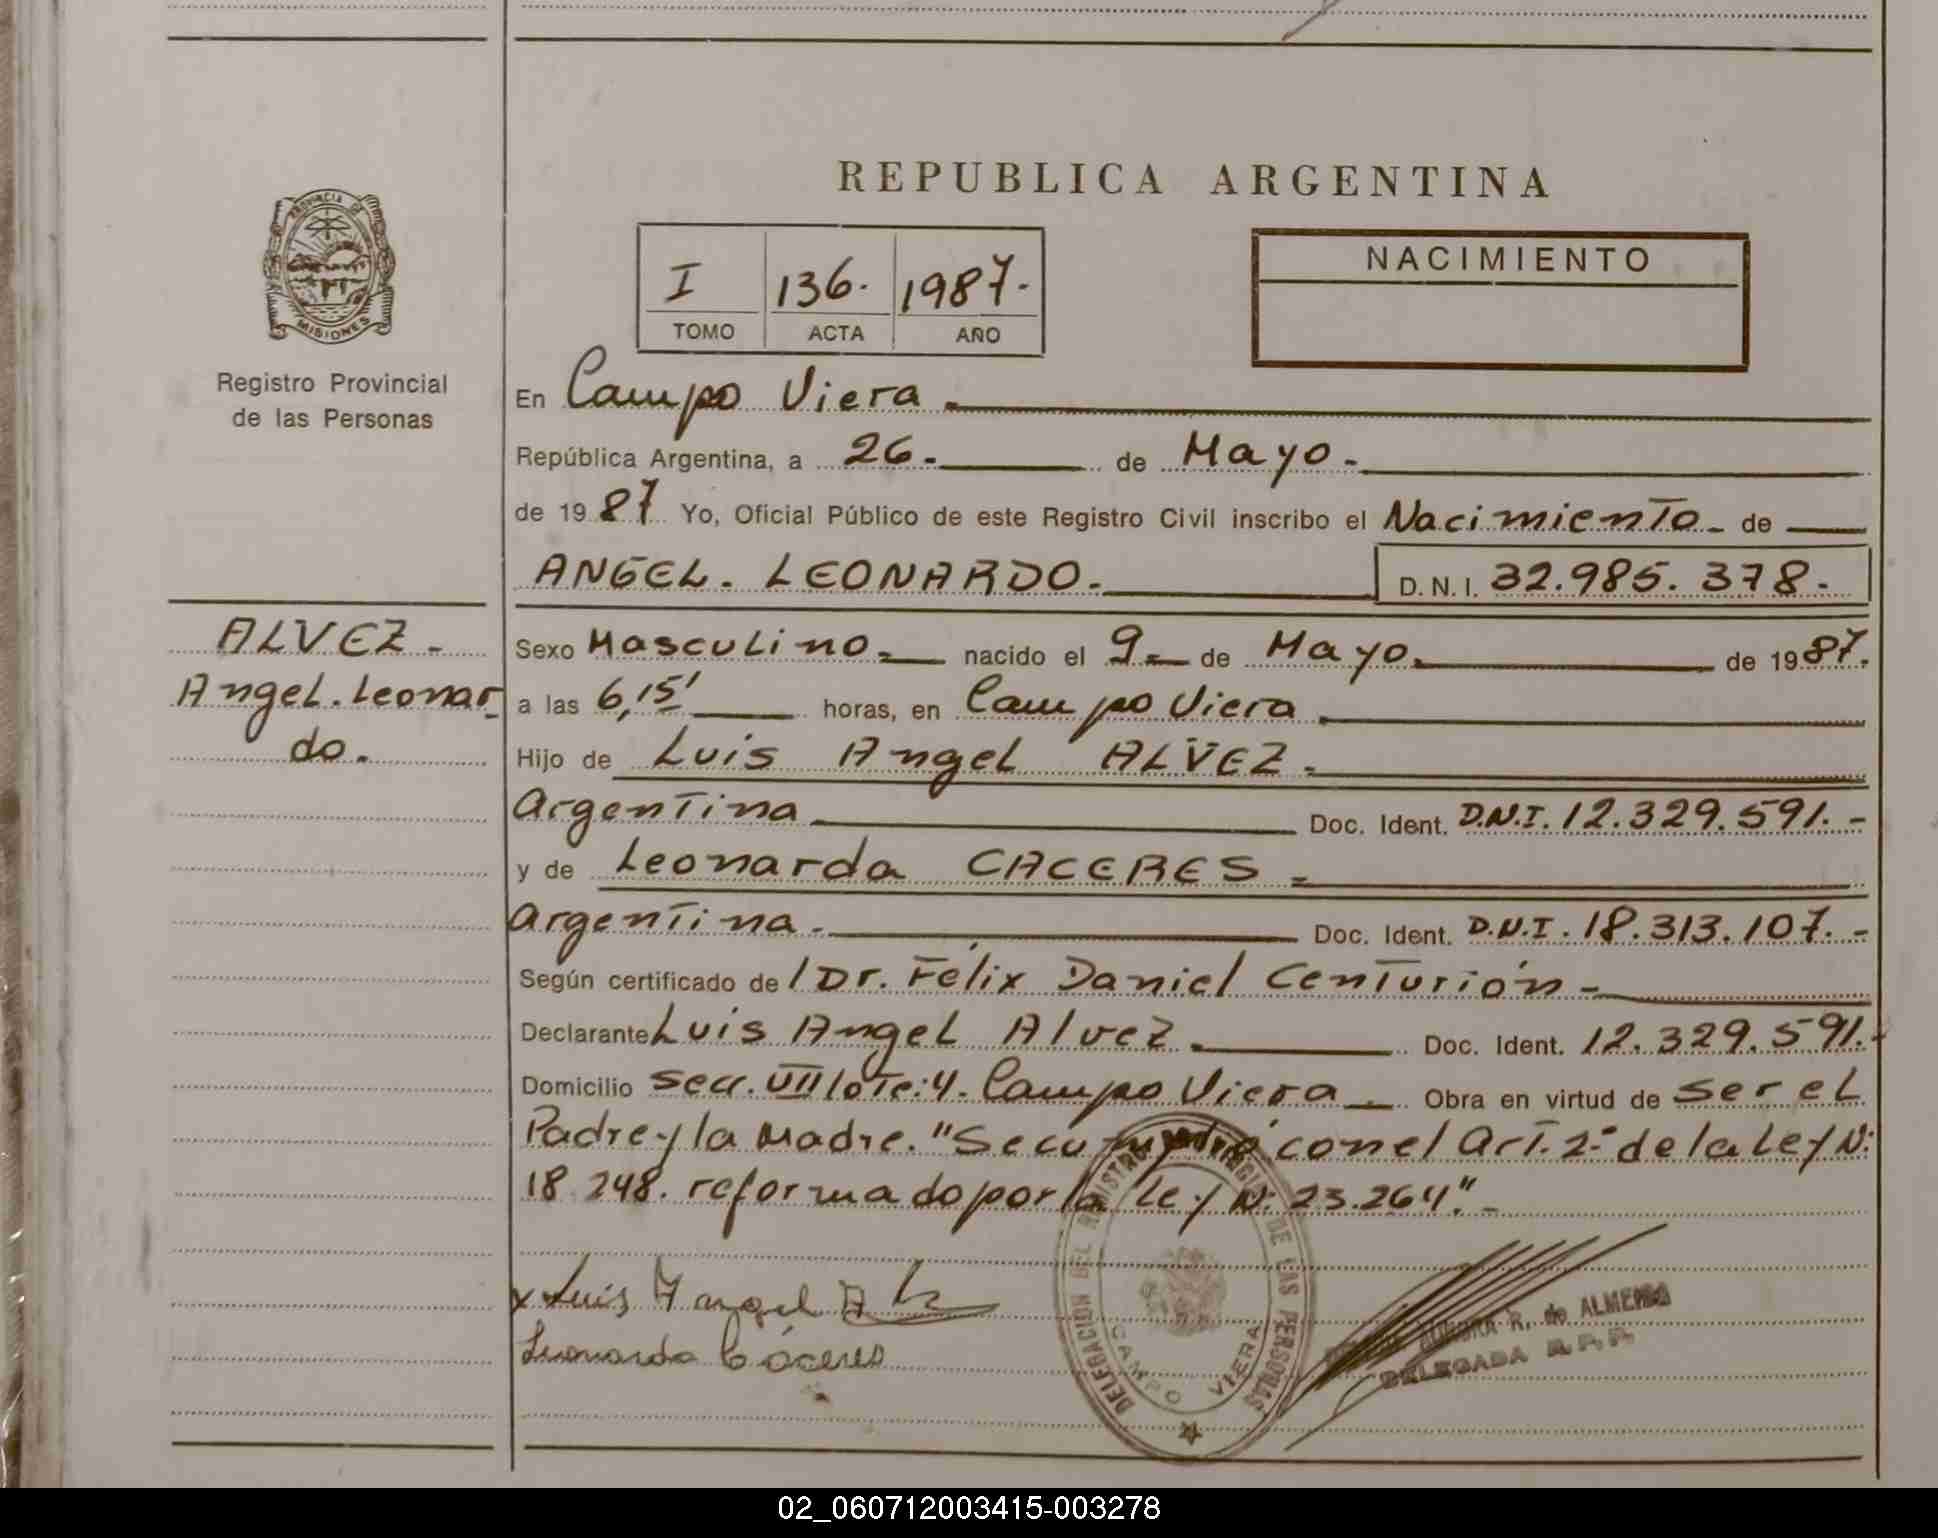 REPUBLICA ARGENTINA
PROVINCIA DE
MISIONES
Registro Provincial
de las Personas
I 136. 1987.
TOMO ACTA AÑO
NACIMIENTO
En Campo Viera
República Argentina, a 26. de Mayo.
de 19 87 Yo, Oficial Público de este Registro Civil inscribo el Nacimiento de
ANGEL. LEONARDO. D. N. I. 32.985.378.
ALVEZ.
Angel. Leonar
do.
Sexo Masculino nacido el 9 de Mayo. de 19 87.
a las 6,15' horas, en Campo Viera
Hijo de Luis Angel ALVEZ.
Argentina Doc. Ident. D.N.I. 12.329.591.-
y de Leonarda CACERES
Argentina. Doc. Ident. D.N.I. 18.313.107.-
Según certificado de l Dr. Félix Daniel Centurión-
Declarante Luis Angel Alvez Doc. Ident. 12.329.591.-
Domicilio Secc. VIII lote:4. Campo Viera Obra en virtud de ser el
Padre y la Madre. "Se con el Art. 2º de la Ley N:
18.248. reformado por la Ley N: 23.264".-
x Luis Angel
Leonarda Cáceres
DELEGACION DEL REGISTRO PROVINCIAL DE LAS PERSONAS
CAMPO VIERA
R. de ALMEIDA
DELEGADA R. P. P.
02_060712003415-003278